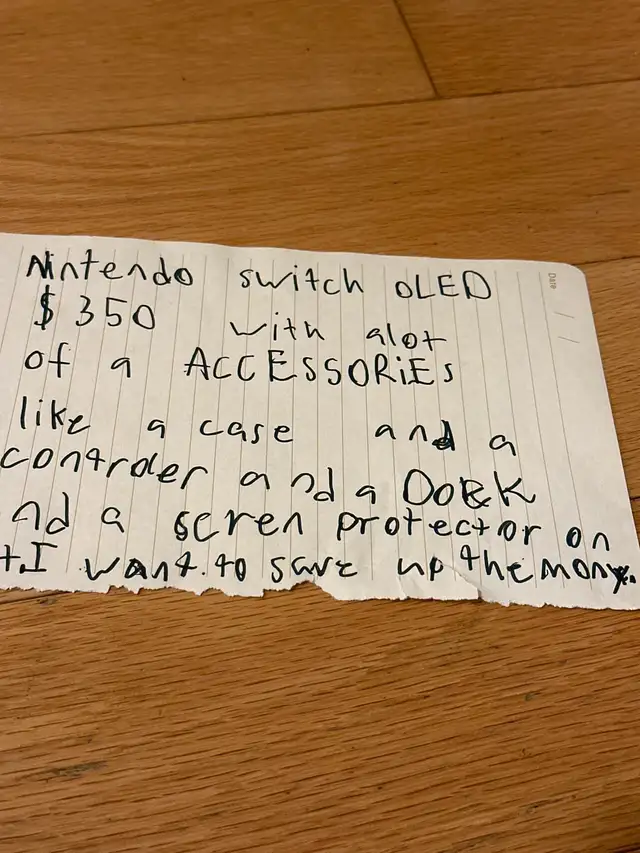 Nintendo switch OLED
$350 with alot
of a ACCESSORiES
like a case and a
controler and a DOCK
nd a scren protector on
t.I want.to save up the mony.
Date